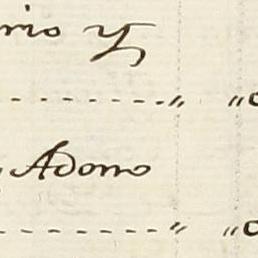 rio y
--------„ „o
Adorno
--------„ „o